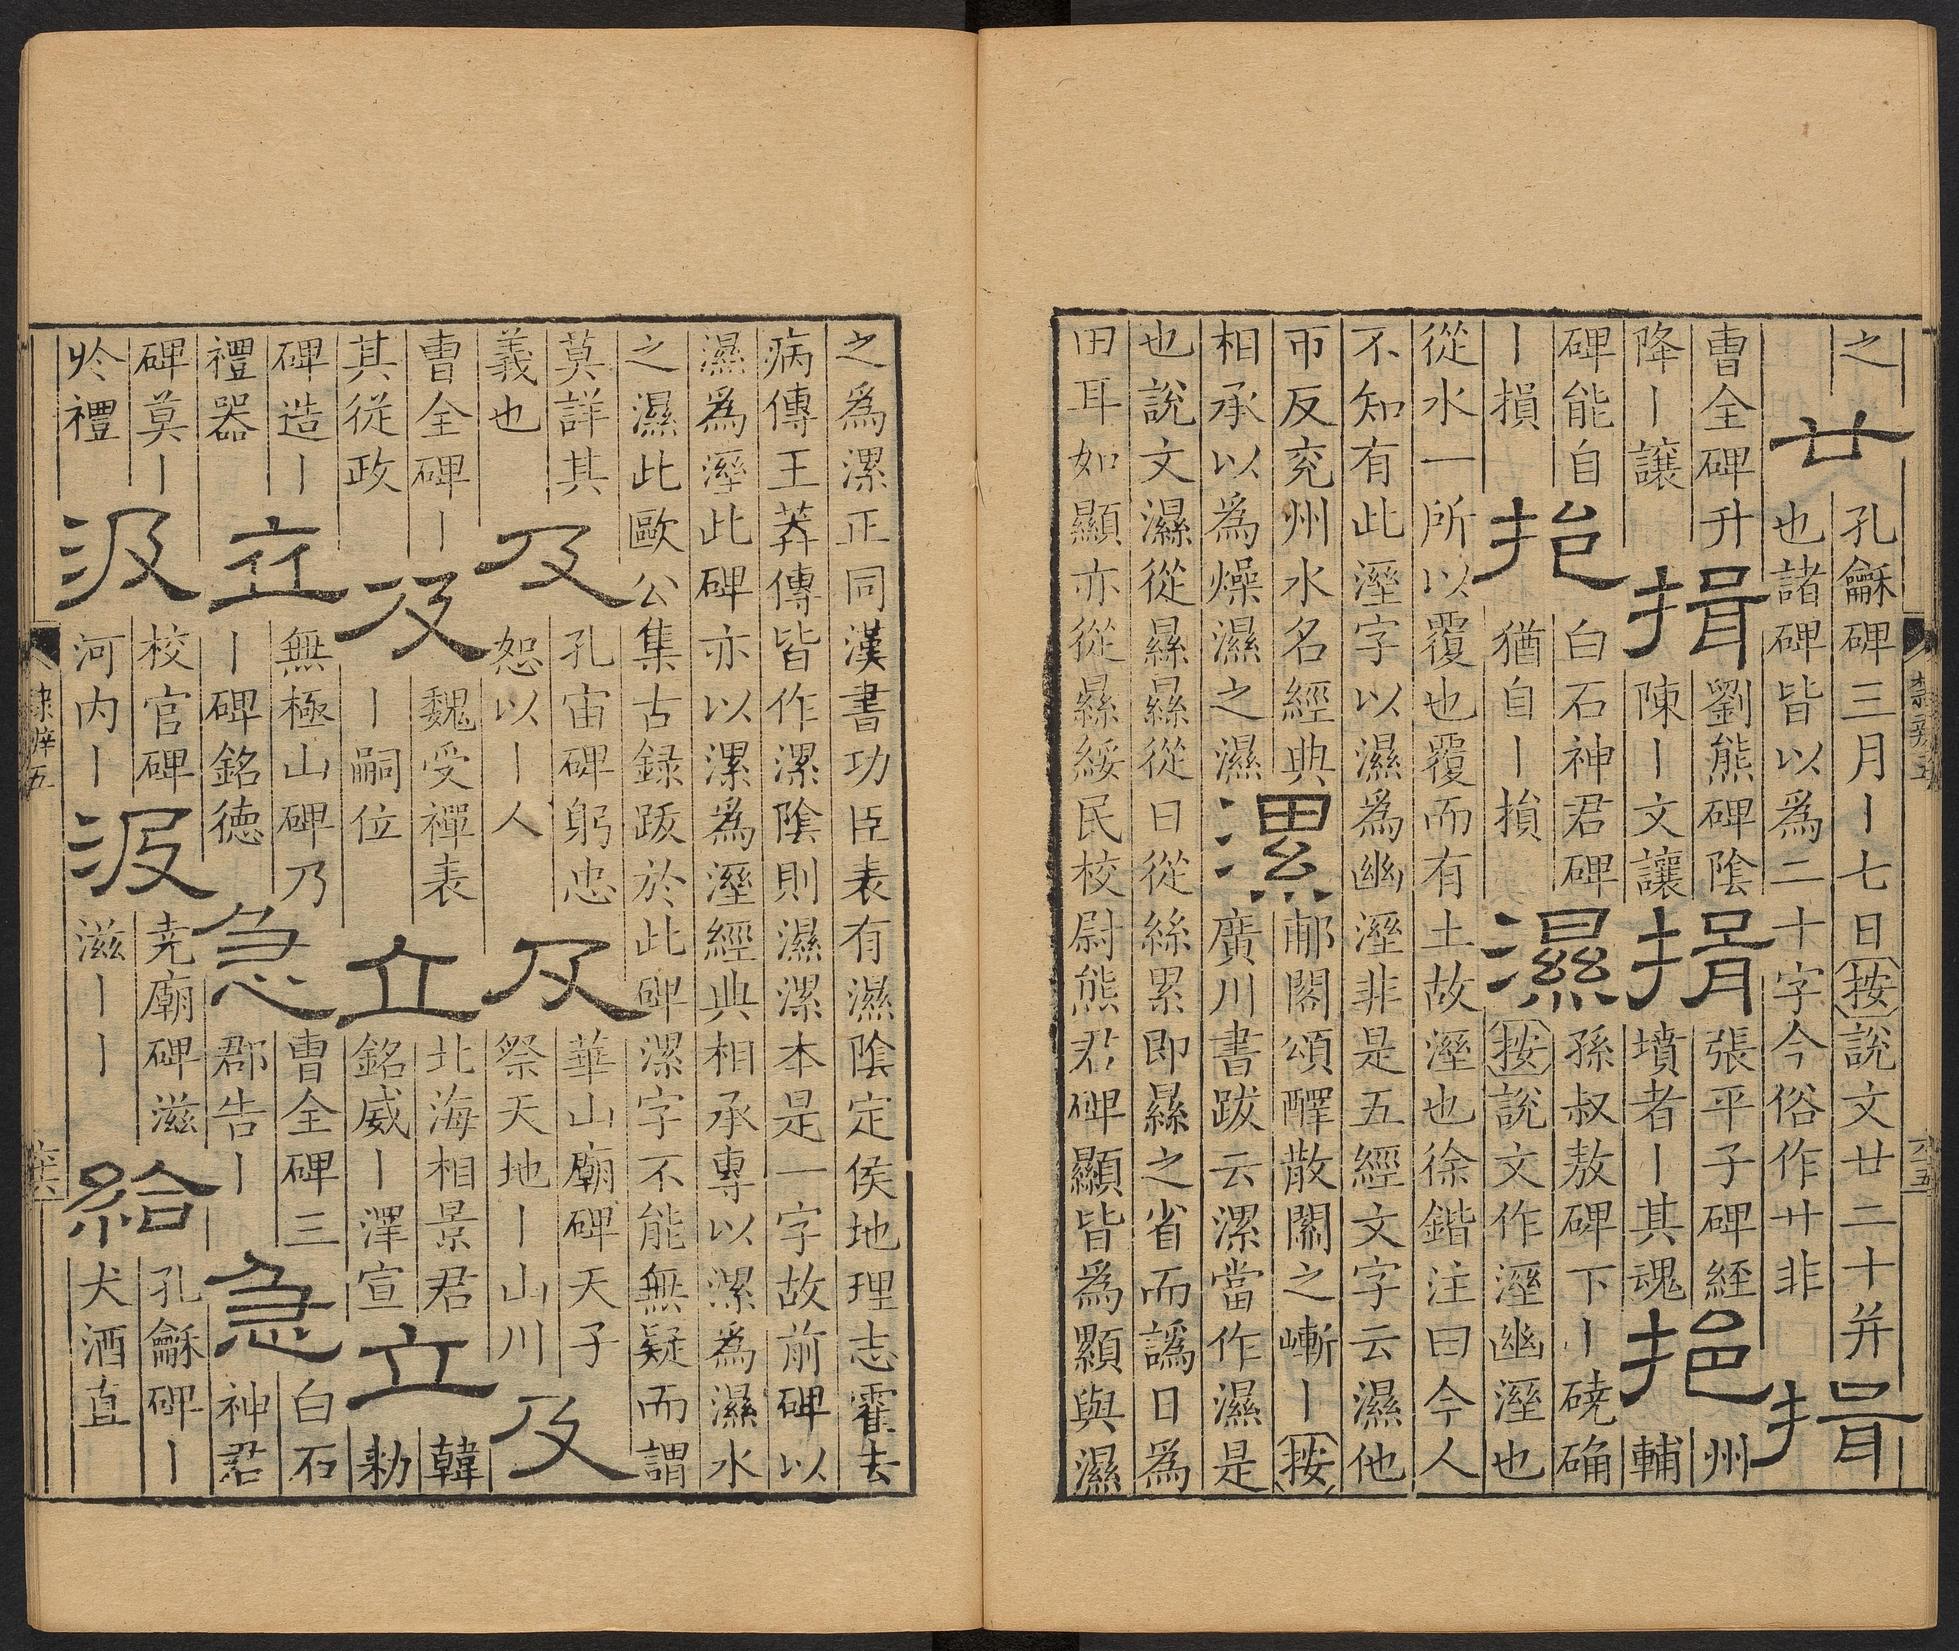 之
廿
孔龢碑三月丨七日按說文廿二十并
也諸碑皆以為二十字今俗作廾非
揖
曹全碑升
降丨讓
揖
劉熊碑陰
陳丨文讓
揖
張平子碑經
墳者丨其魂
挹
州
輔
碑能自
丨損
挹
白石神君碑
猶自丨損
濕
孫叔敖碑下丨磽确
按說文作溼幽溼也
從水一所以覆也覆而有土故溼也徐鍇注曰今人
不知有此溼字以濕為幽溼非是五經文字云濕他
帀反兖州水名經典
相承以為燥濕之濕
漯
郙閣頌醳散關之嶃丨按
廣川書跋云漯當作濕是
也說文濕從㬎㬎從日從絲累即㬎之省而譌日為
田耳如顯亦從㬎綏民校尉熊君碑顯皆為顯與濕
之為漯正同漢書功臣表有濕陰定侯地理志霍去
病傳王莽傳皆作漯陰則濕漯本是一字故前碑以
濕為溼此碑亦以漯為溼經典相承專以漯為濕水
之濕此歐公集古録跋於此碑漯字不能無疑而謂
莫詳其
義也
及
孔宙碑躬忠
恕以丨人
及
華山廟碑天子
祭天地丨山川
及
曹全碑丨
其從政
及
魏受禪表
丨嗣位
立
北海相景君
銘威丨澤宣
立
韓
勑
碑造丨
禮器
立
無極山碑乃
丨碑銘德
急
曹全碑三
郡告丨
急
白石
神君
碑莫丨
於禮
汲
校官碑
河内丨
汲
尭廟碑滋
滋丨丨
給
孔龢碑丨
犬酒直
隸辨五